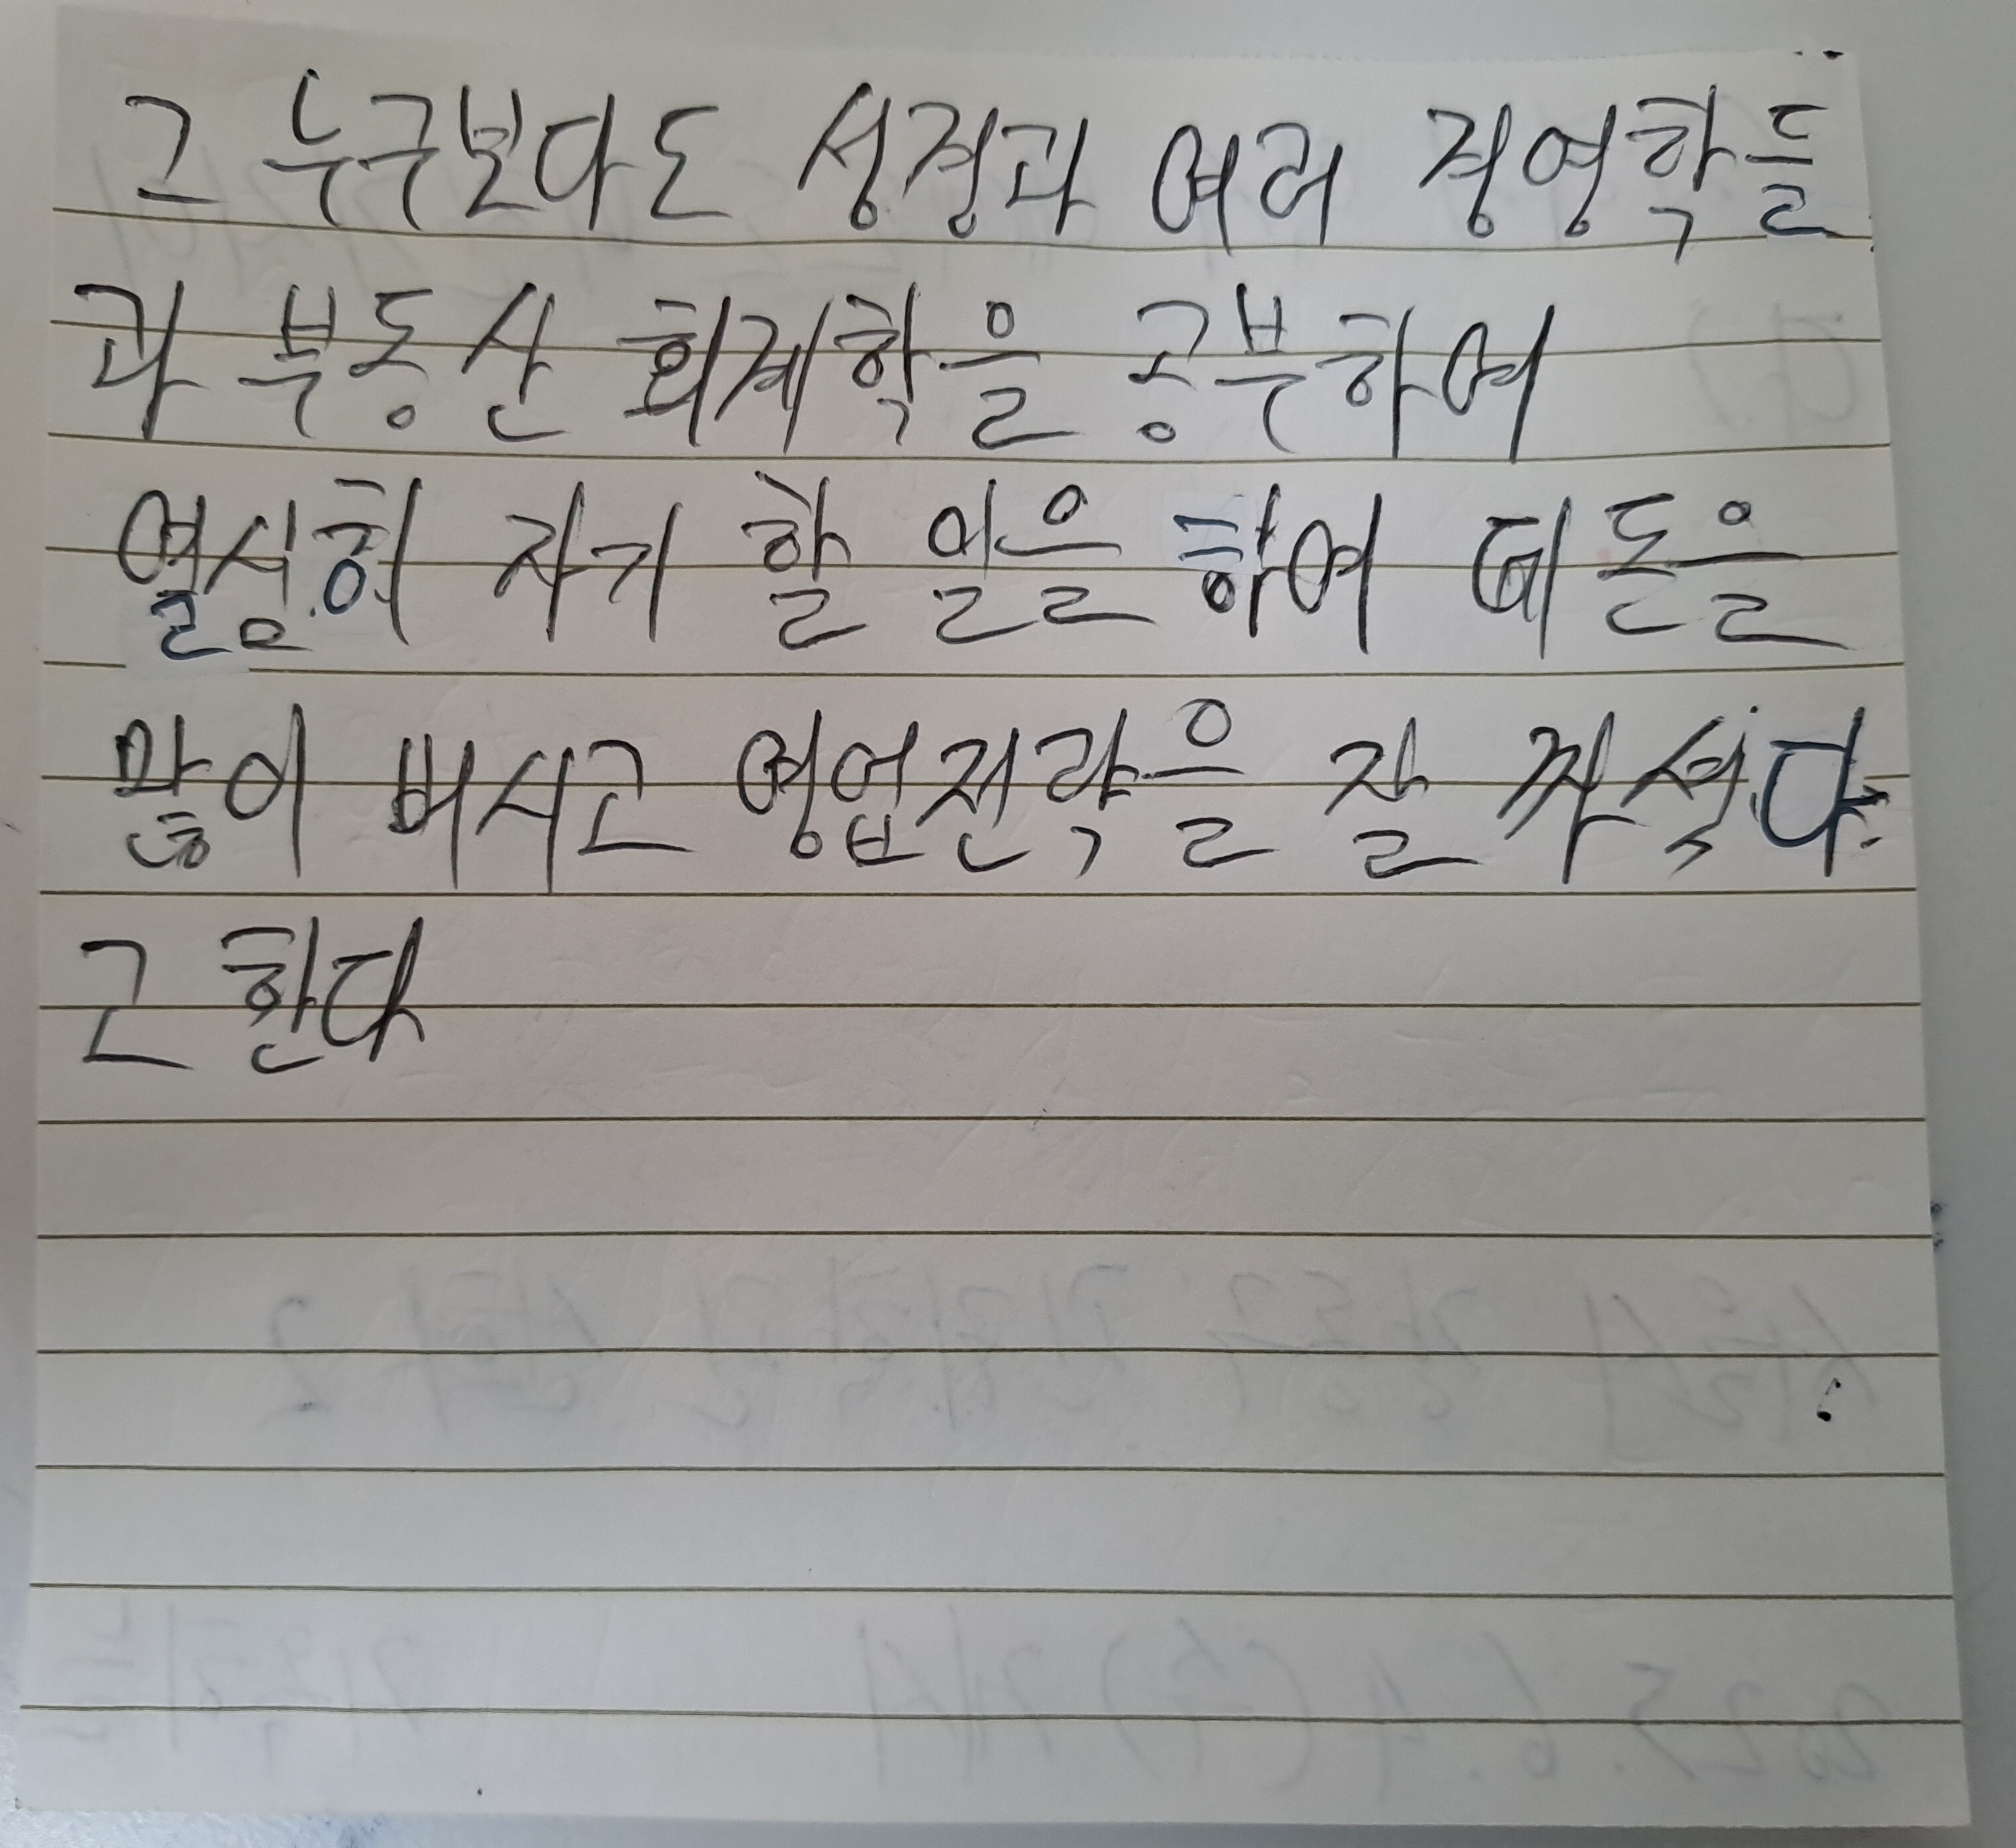 그 누구보다도 성경과 여러 경영학들
과 부동산 회계학을 공부하여
열심히 자기 할 일을 하여 떼돈을
많이 버시고 영업전략을 잘 짜셨다
고 한다